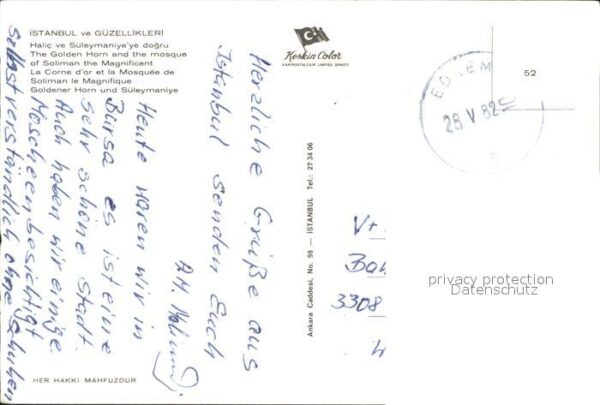 İSTANBUL ve GÜZELLİKLERİ
Haliç ve Süleymaniye'ye doğru
The Golden Horn and the mosque
of Soliman the Magnificent
La Corne d'or et la Mosquée de
Soliman le Magnifique
Goldener Horn und Süleymaniye
Keskin Color
KARTPOSTALCILIK LIMITED ŞİRKETİ
52
28 V 82
Herzliche Grüße aus
Istanbul senden Euch
Heute waren wir in
Bursa es ist eine
sehr schöne Stadt.
Auch haben wir einige
Moscheen besichtigt
selbstverständlich ohne Schuhen
Ankara Caddesi, No. 98 — İSTANBUL Tel.: 27 34 06
3308
privacy protection
Datenschutz
HER HAKKI MAHFUZDUR